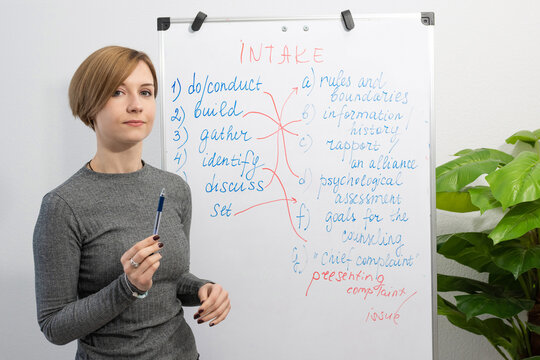 INTAKE
1) do/conduct
2) build
3) gather
4) identify
discuss
set
a) rules and
boundaries
b) information/
history
c) rapport
an alliance
d) psychological
assessment
f) goals for the
counseling
"chief complaint"
presenting
complaint/
issue/